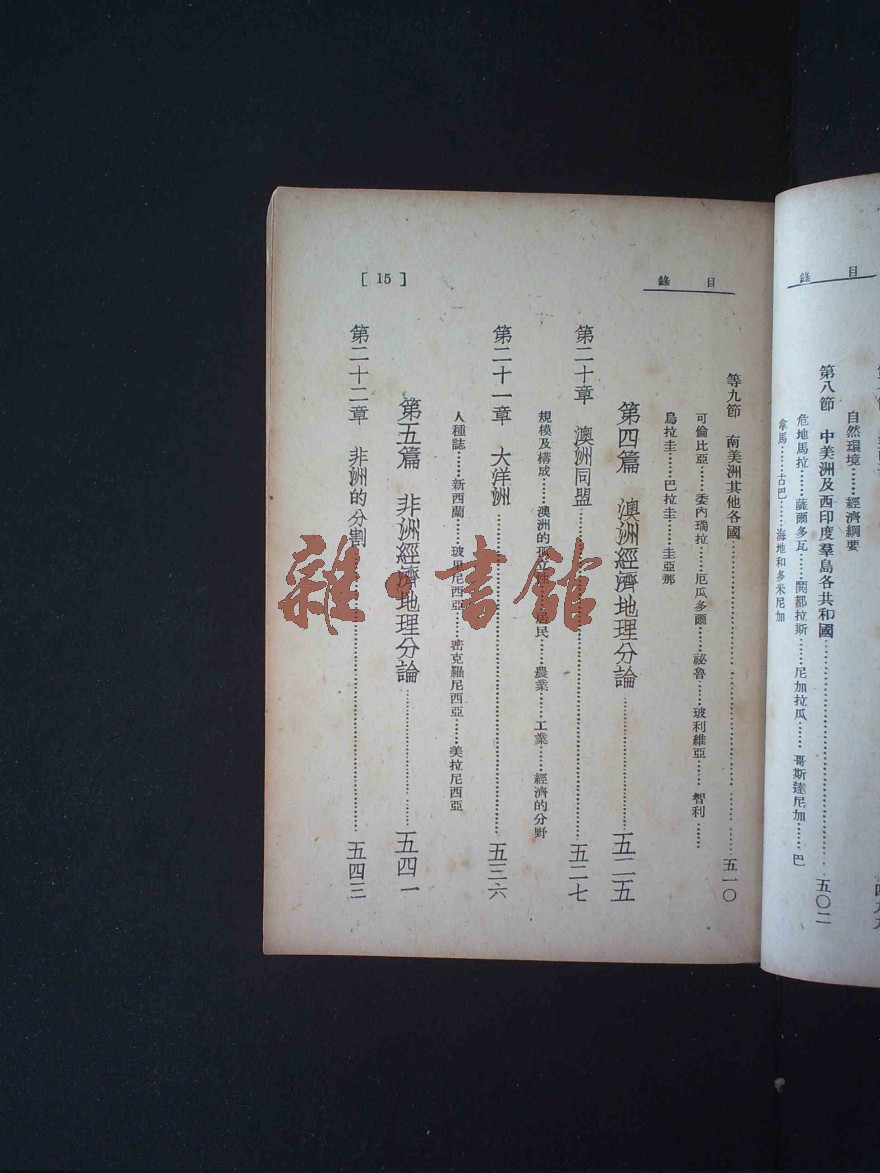 目 錄
自然環境……經濟綱要
第八節 中美洲及西印度羣島各共和國……五〇二
危地馬拉……薩爾多瓦……閧都拉斯……尼加拉瓜……哥斯達尼加……巴
拿馬……古巴……海地和多米尼加
目 錄
[ 15 ]
等九節 南美洲其他各國……五一〇
可倫比亞……委內瑞拉……厄瓜多爾……祕魯……玻利維亞……智利……
烏拉圭……巴拉圭……圭亞那
第四篇 澳洲經濟地理分論……五二五
第二十章 澳洲同盟……五二七
規模及構成……澳洲的……居民……農業……工業……經濟的分野
第二十一章 大洋洲……五三六
人種誌……新西蘭……玻里尼西亞……密克羅尼西亞……美拉尼西亞
第五篇 非洲經濟地理分論……五四一
第二十二章 非洲的分割……五四三
雜·書館